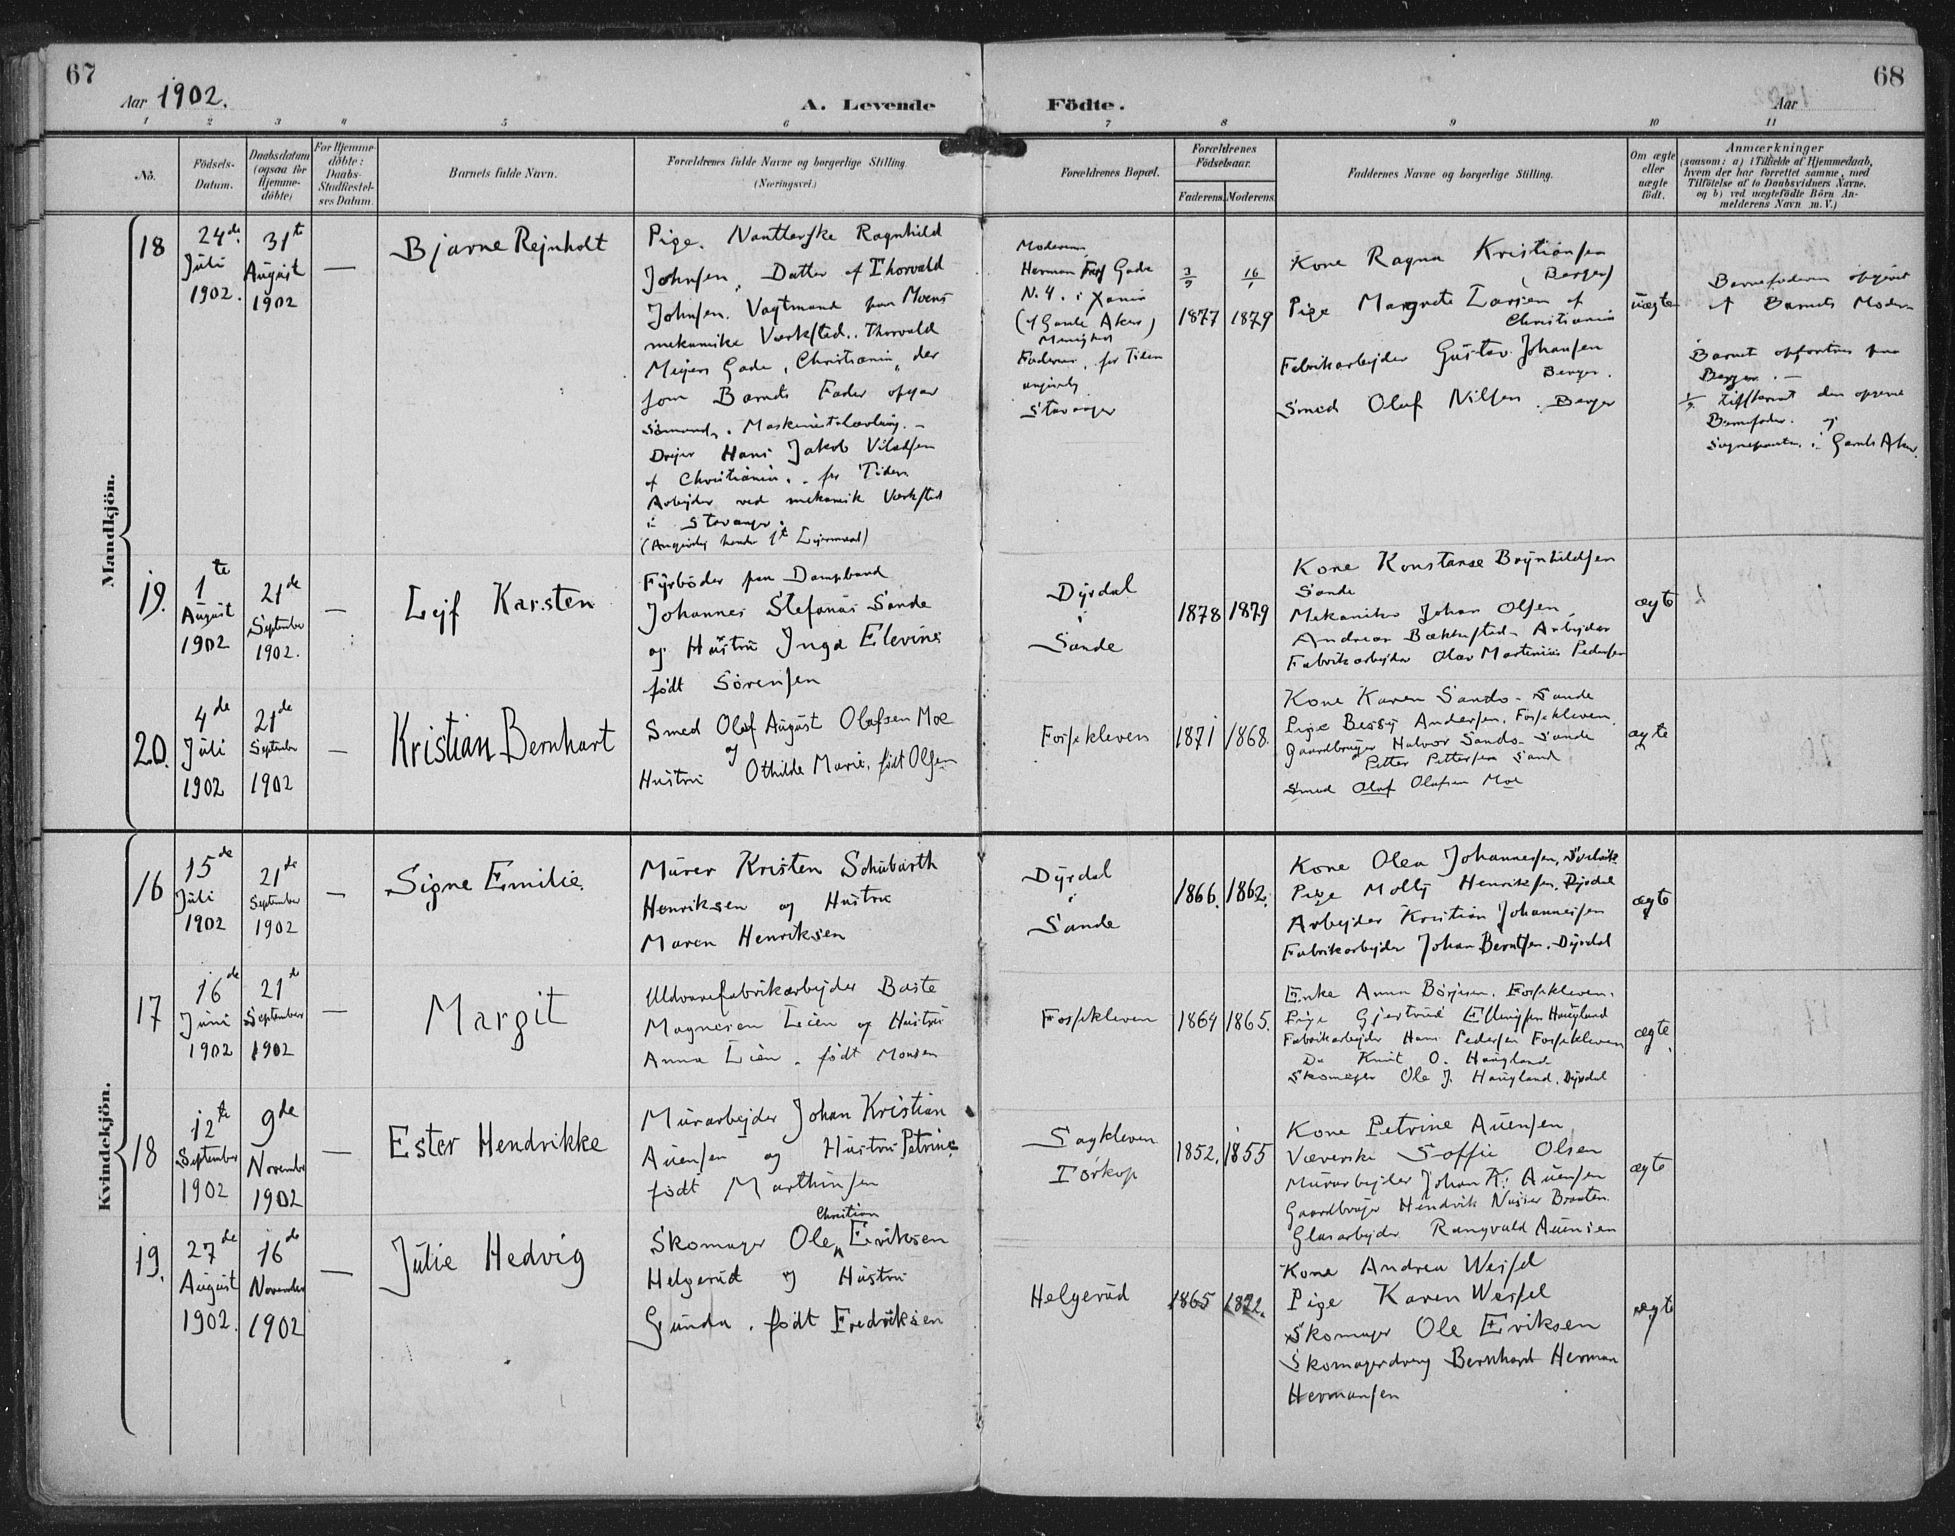 67
Aar 1902.
A. Levende Födte.
68
Aar
1 2 3 4 5 6 7 8 9 10 11
No.
Födsels-
Datum.
Daabsdatum
(ogsaa for
Hjemme-
döbte)
For Hjemme-
döbte:
Daabs-
Stadfæstel-
ses Datum.
Barnets fulde Navn.
Forældrenes fulde Navne og borgerlige Stilling
(Næringsvei.)
Forældrenes Bopæl.
Forældrenes
Födselsaar.
Faderens. Moderens.
Faddernes Navne og borgerlige Stilling.
Om ægte
eller
uægte
födt.
Anmærkninger
(saasom: a) i Tilfælde af Hjemmedaab,
hvem der har forrettet samme, med
Tilföielse af to Daabsvidners Navne,
og b) ved uægtefödte Börn An-
melderens Navn m. V.)
Mandkjön.
18
24de
Juli
1902.
31te
August
1902
—
Bjarne Rejnholt
Pige. Ragnhild
Johnsen, Datter af Thorvald
Johnsen. Vagtmand paa
mekaniske Værksted. Thorvald
Meyers Gade, Christiania, der
som Barnets Fader opgav
Sømand,
Drejer Hans Jakob
af Christiania. for Tiden
Arbejder ved mekanisk Værksted
i Stavanger.
Moderen
Herman Gade
N. 4. i Xania
(Gamle Aker)
Menighed
Faderen, for Tiden
angivelig
Stavanger
3/9 1877
16/1 1879
Kone Ragna Kristiansen
(Berger)
Pige Margrete Larsen af
Christiania
Fabrikarbejder Gustav Johansen
Berger.
Smed Olaf Nilsen. Berger
uægte
Barnefaderen opgivet
af Barnets Moder
Barnet opfostres paa
Berger. —
den opgivne
Barnefader. og
Sognepresten i Gamle Aker.
19.
1te
August
1902
21de
September
1902.
—
Lejf Karsten
Fyrbøder paa Dampbaad
Johannes Stefanus Sande
og Hustru Inga Elevine
født Sørensen
Dyrdal
i
Sande
1878
1879
Kone Konstanse Brynhildsen
Sande
Mekaniker Johan Olsen
Andreas Bækkested Arbejder
Fabrikarbejder Olav Martinius Pedersen
ægte
20.
4de
Juli
1902
21de
September
1902
—
Kristian Bernhart
Smed Olaf August Olafsen Moe
og
Hustru Othilde Marie, født Olsen
Fossekleven
1871
1868.
Kone Karen Sando Sande
Pige Bessy Andersen. Fossekleven.
Gaardbruger Halvor Sando Sande
Petter Pettersen Sand
Smed Olaf Olafsen Moe
ægte
Kvindekjön.
16
15de
Juli
1902
21de
September
1902
—
Signe Emilie.
Murer Kristen Schubarth
Henriksen og Hustru
Maren Henriksen
Dyrdal
i
Sande
1866.
1862.
Kone Olea Johannesen,
Pige Molly Henriksen. Dyrdal
Arbejder Kristian Johannesen
Fabrikarbejder Johan Berntsen. Dyrdal
ægte
17
16de
Juni
1902
21de
September
1902
—
Margit
Uldvarefabrikarbejder Baste
Magnesen Lien og Hustru
Anna Lien. født Monsen
Fossekleven
1864
1865.
Enke Anna Börjesen. Fossekleven.
Pige Gjertrud Ellingsen Haugland
Fabrikarbejder Hans Pedersen Fossekleven
Do Knut O. Haugland
Skomager Ole J. Haugland. Dyrdal
ægte.
18
12te
September
1902
9de
November
1902
—
Ester Hendrikke
Murarbejder Johan Kristian
Auensen og Hustru Petrine
født Marthinsen
Sagkleven
Tørkop
1852.
1855
Kone Petrine Auensen
Væverske Soffie Olsen
Murarbejder Johan K. Auensen
Gaardbruger Hendrik Braaten.
Glasarbejder Rangvald Auensen
ægte
19.
27de
August
1902.
16de
November
1902
—
Julie Hedvig
Christian
Skomager Ole Eriksen
Helgerud og Hustru
Gunda. født Fredriksen
Helgerud
1865
1872.
Kone Andrea Wessel
Pige Karen Wessel
Skomager Ole Eriksen
Skomagerdreng Bernhard Herman
Hermansen
ægte